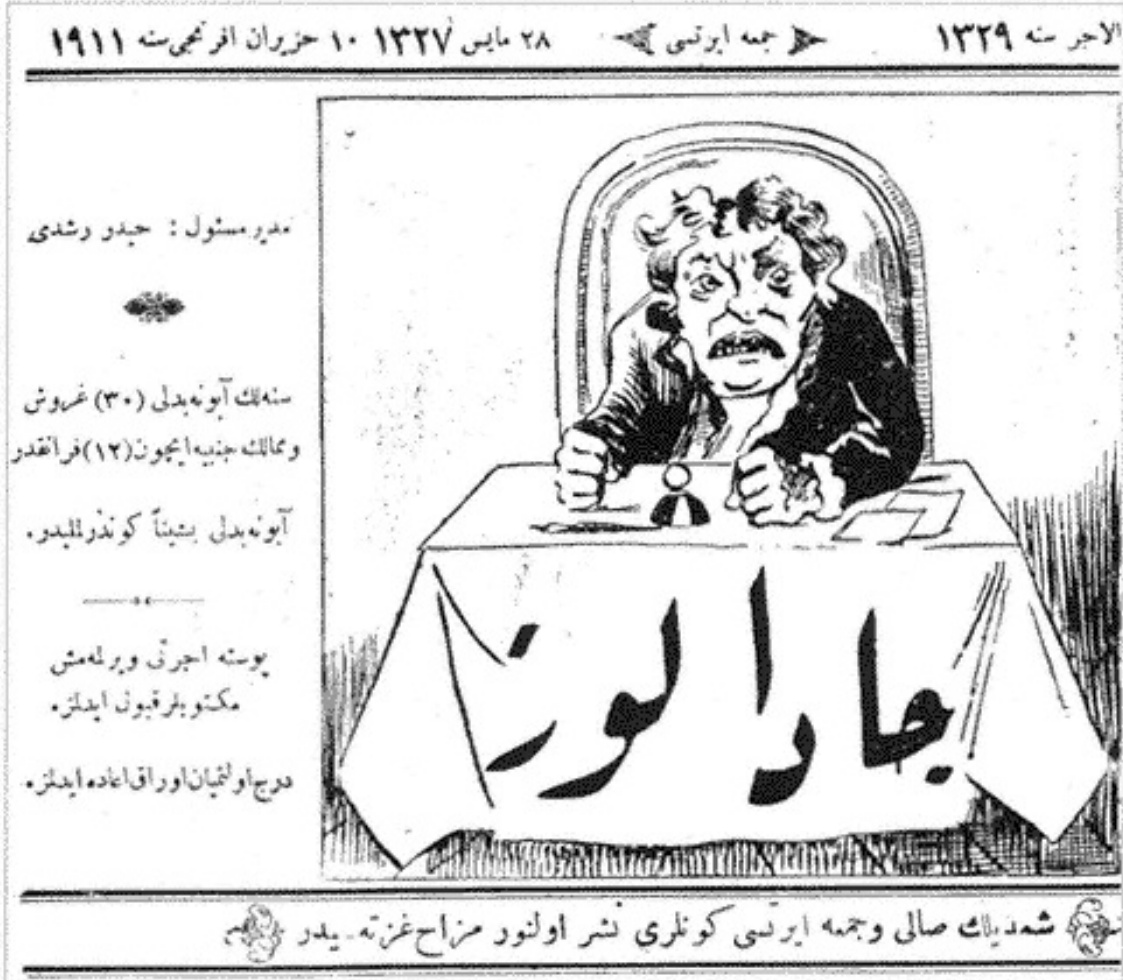 الآخر سنه ١٣٢٩ جمعه ايرتسى ٢٨ مايس ١٣٢٧ ١٠ حزيران افرنجى سنه ١٩١١
مدير مسئول : حيدر رشدى
سنه لك آبونه بدلى (٣٠) غروش
وممالك جنبيه ايچون (١٢) فرانقدر
آبونه بدلى پشيناً كوندرلمليدر.
پوسته اجرتى ويرلمه مش
مكتوبلر قبول ايدلمز.
درج اولنميان اوراق اعاده ايدلمز.
جادالوز
شمديلك صالى وجمعه ايرتسى كونلرى نشر اولنور مزاح غزته سيدر